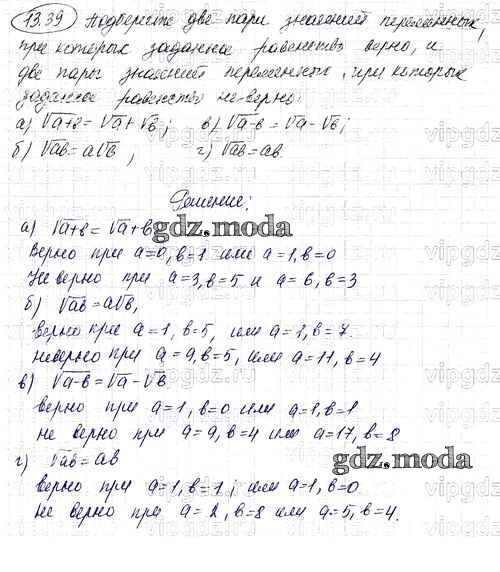 13.39 Подберите две пары значений переменных,
при которых заданное равенство верно, и
две пары значений переменных, при которых
заданное равенство не верно:
а) √a+b = √a + √b; в) √a-b = √a - √b;
б) √ab = a√b, г) √ab = ab.
Решение:
а) √a+b = √a + b
Верно при a=0, b=1 или a=1, b=0
Не верно при a=3, b=5 и a=6, b=3
б) √ab = a√b,
верно при a=1, b=5, или a=1, b=7.
неверно при a=9, b=5, или a=11, b=4
в) √a-b = √a - √b
верно при a=1, b=0 или a=1, b=1
не верно при a=9, b=4 или a=17, b=8
г) √ab = ab
верно при a=1, b=1; или a=1, b=0
не верно при a=2, b=8 или a=5, b=4.
gdz.moda
gdz.moda
vipgdz